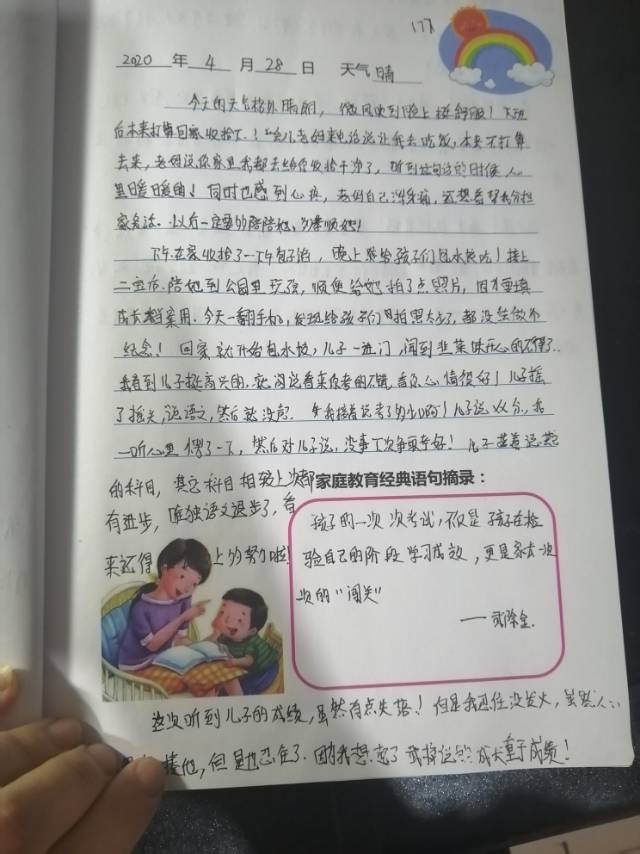 177
2020 年 4 月 28 日 天气 晴
今天的天气格外晴朗，微风吹到脸上挺舒服！下班
后本来打算回家收拾下，老妈来电话说让我去吃饭，本来不打算
去来，老妈说你家里我都去给你收拾干净了，听到这句话的时候心
里暖暖的！同时也感到心疼，老妈自己浑身痛，还想着帮我分担
家务活。以后一定要多陪陪她，多孝顺她！
下午在家收拾了一下午包子馅，晚上来给孩子们包水饺吃！接上
二宝后陪她到公园里玩玩，顺便给她拍了点照片，因才要填
成长档案用。今天一翻手机，发现给孩子们拍照太少了，都没生做个
纪念！回家就开始包水饺，儿子一进门，闻到韭菜味开心的不得了..
我看到儿子挺高兴的，就问说看来你考的不错，看你心情很好！儿子摇
了摇头，说语文，然后就没声。我接着说考了多少啊！儿子说XX分，我
一听心里愣了一下，然后对儿子说，没事下次争取考好！儿子笑着说其
的科目，其它科目相较上次都
有进步，唯独语文退步了，看
来还得 上多努力啦！
家庭教育经典语句摘录：
孩子的一次次考试，不仅是孩子在检
验自己的阶段学习成效，更是家长一次
次的“闯关”
——
这次听到儿子的成绩，虽然有点失落！但是我忍住没发火，虽然心
揍他，但是也忍住了.因为我想起了 成长重于成绩！